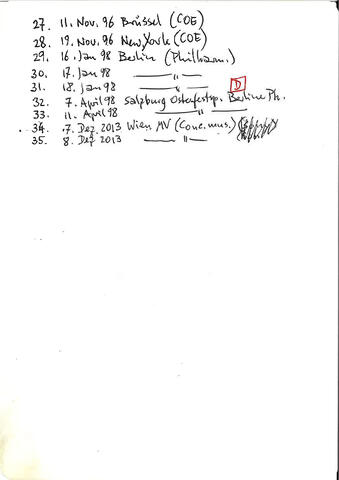 27. 11. Nov. 96 Brüssel (COE)
28. 19. Nov. 96 New York (COE)
29. 16. Jan 98 Berlin (Philharm.)
30. 17. Jan 98 — " —
31. 18. Jan 98 — " — D
32. 7. April 98 Salzburg Osterfestsp. Berliner Ph.
33. 11. April 98 — " —
34. 7. Dez. 2013 Wien MV (Conc. mus.)
35. 8. Dez 2013 — " —